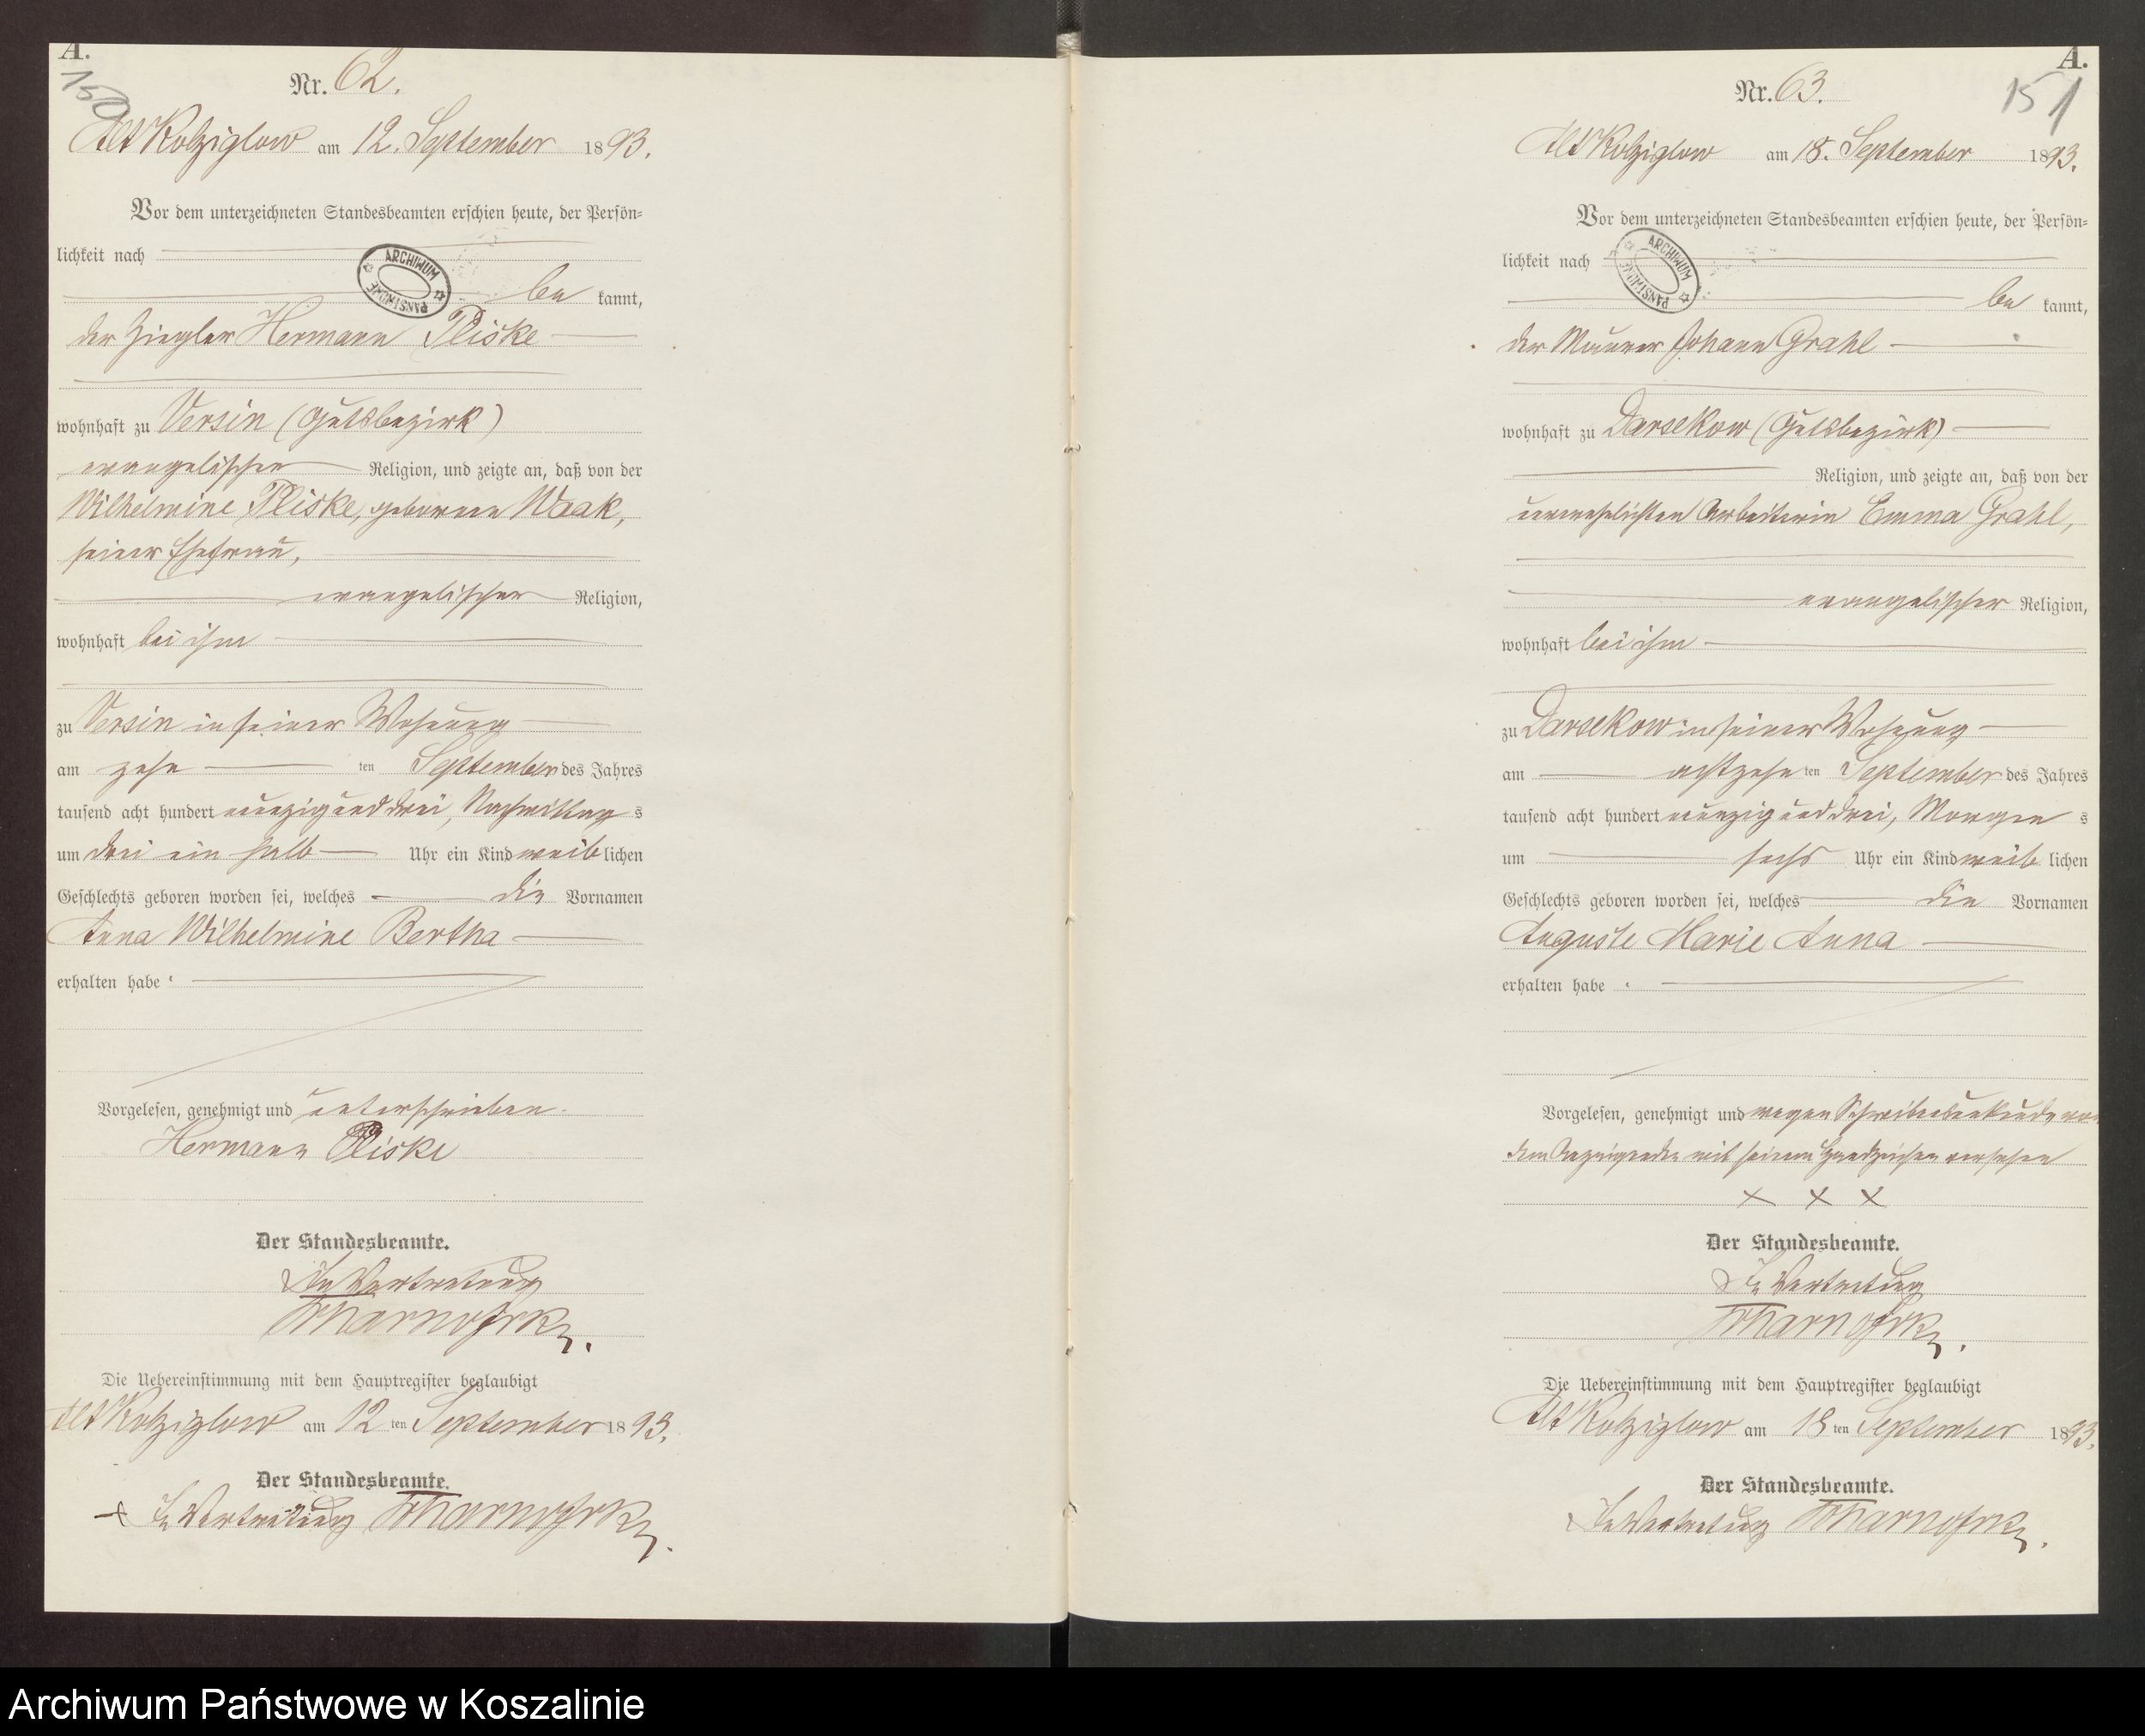 A.
150
Nr. 62.
Alt Kolziglow am 12. September 1893.
Vor dem unterzeichneten Standesbeamten erschien heute, der Persön=
lichkeit nach
ARCHIWUM PAŃSTWOWE
be kannt,
der Ziegler Hermann Pliske
wohnhaft zu Versin (Gutsbezirk)
evangelischer Religion, und zeigte an, daß von der
Wilhelmine Pliske, geborene Waak,
seiner Ehefrau,
evangelischer Religion,
wohnhaft bei ihm
zu Versin in seiner Wohnung
am zehn ten September des Jahres
tausend acht hundert neunzig und drei, Nachmittag s
um drei ein halb Uhr ein Kind weib lichen
Geschlechts geboren worden sei, welches die Vornamen
Anna Wilhelmine Bertha
erhalten habe
Vorgelesen, genehmigt und unterschrieben.
Hermann Pliske
Der Standesbeamte.
In Vertretung
Die Uebereinstimmung mit dem Hauptregister beglaubigt
Alt Kolziglow am 12 ten September 1893.
Der Standesbeamte.
In Vertretung
A.
151
Nr. 63.
Alt Kolziglow am 18. September 1893.
Vor dem unterzeichneten Standesbeamten erschien heute, der Persön=
lichkeit nach
ARCHIWUM PAŃSTWOWE
be kannt,
der Maurer Johann Grahl
wohnhaft zu Darsekow (Gutsbezirk)
Religion, und zeigte an, daß von der
unverehelichten Arbeiterin Emma Grahl,
evangelischer Religion,
wohnhaft bei ihm
zu Darsekow in seiner Wohnung
am achtzehn ten September des Jahres
tausend acht hundert neunzig und drei, Morgen s
um sechs Uhr ein Kind weib lichen
Geschlechts geboren worden sei, welches die Vornamen
Auguste Marie Anna
erhalten habe
Vorgelesen, genehmigt und wegen Schreibensunkunde von
dem Anzeigenden mit seinem Handzeichen versehen
x x x
Der Standesbeamte.
In Vertretung
Die Uebereinstimmung mit dem Hauptregister beglaubigt
Alt Kolziglow am 18 ten September 1893.
Der Standesbeamte.
In Vertretung
Archiwum Państwowe w Koszalinie